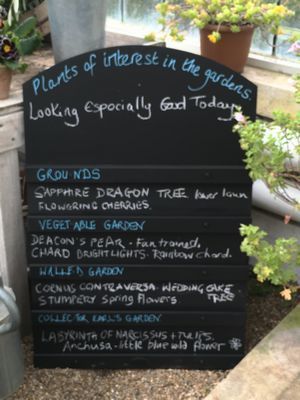 Plants of interest in the gardens.
Looking Especially Good Today
GROUNDS
SAPPHIRE DRAGON TREE lower lawn
FLOWERING CHERRIES.
VEGETABLE GARDEN
DEACON'S PEAR - Fan trained.
CHARD BRIGHT LIGHTS - Rainbow chard.
WALLED GARDEN
CORNUS CONTRAVERSA WEDDING CAKE
TREE
STUMPERY Spring flowers.
COLLECTOR EARL'S GARDEN
LABYRINTH OF NARCISSUS + TULIPS.
Anchusa - little blue wild flower